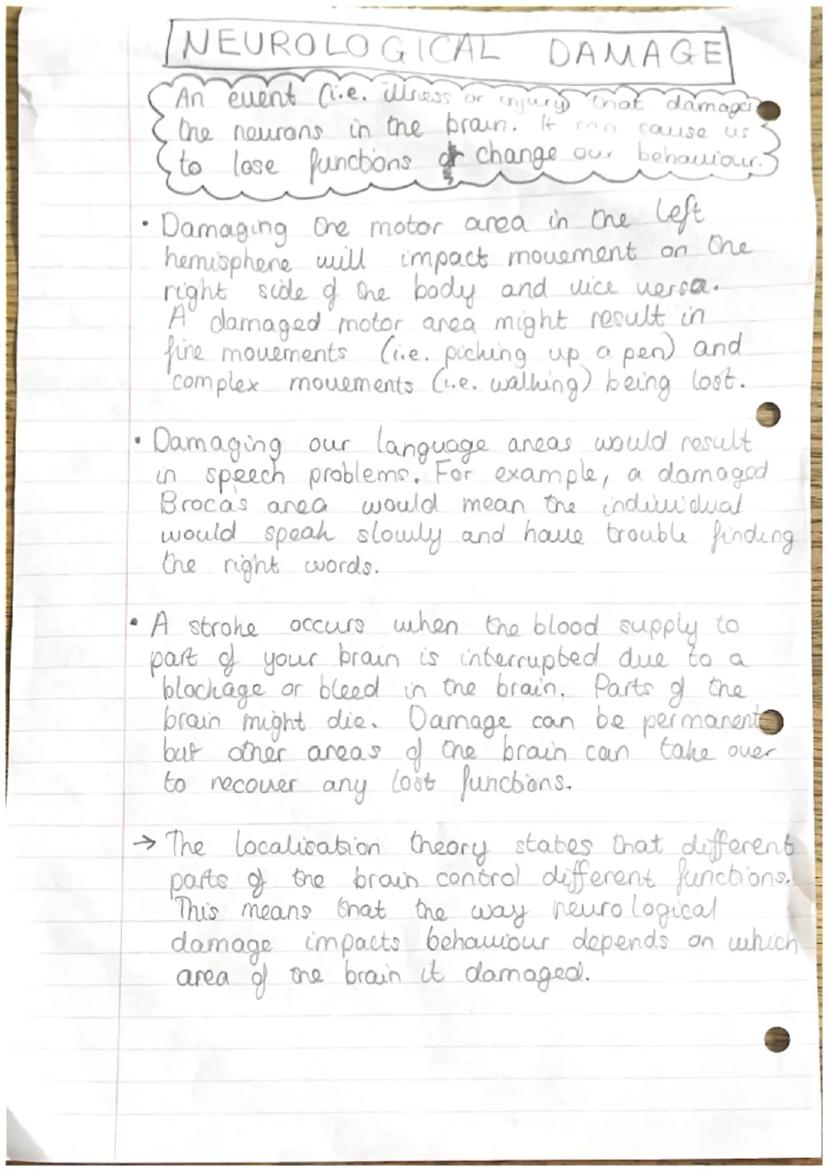 NEUROLOGICAL DAMAGE
An event (i.e. illness or injury) that damages
the neurons in the brain. It can cause us
to lose functions or change our behaviour.
• Damaging the motor area in the left
hemisphere will impact movement on the
right side of the body and vice versa.
A damaged motor area might result in
fine movements (i.e. picking up a pen) and
complex movements (i.e. walking) being lost.
• Damaging our language areas would result
in speech problems. For example, a damaged
Broca's area would mean the individual
would speak slowly and have trouble finding
the right words.
• A stroke occurs when the blood supply to
part of your brain is interrupted due to a
blockage or bleed in the brain. Parts of the
brain might die. Damage can be permanent
but other areas of the brain can take over
to recover any lost functions.
→ The localisation theory states that different
parts of the brain control different functions.
This means that the way neurological
damage impacts behaviour depends on which
area of the brain it damaged.